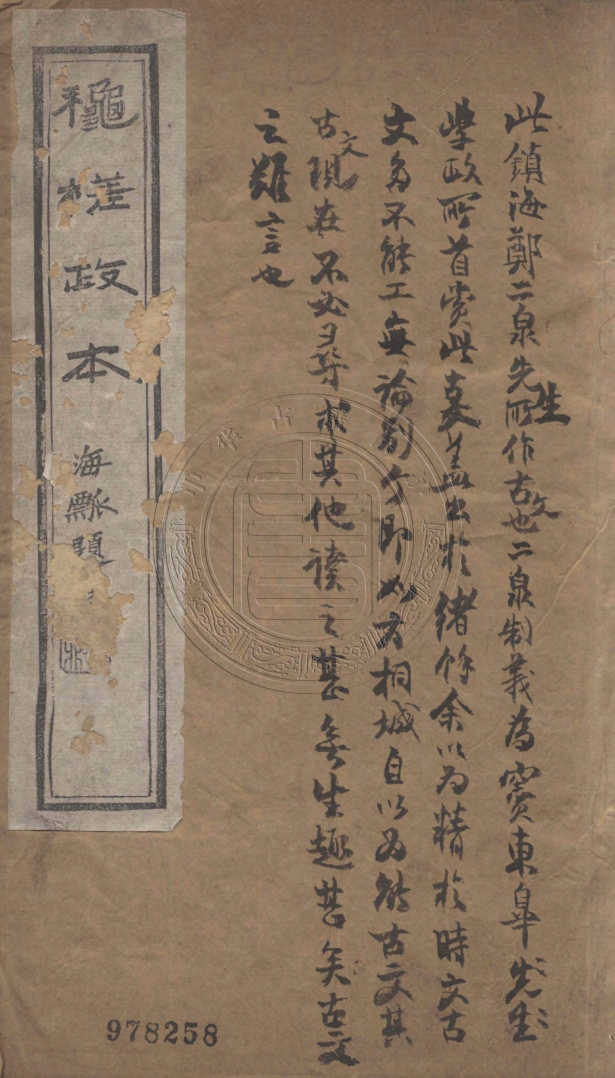 此鎮海鄭二泉先生所作古文也二泉制義為竇東臯先生
學政所首賞此藁蓋出於緒餘余以為精於時文古
文多不能工無論別个即如方桐城自以為能古文其
古文現在不必尋求其他讀之甚無生趣甚矣古文
之難言也
穐槎政本
海瓢題
978258